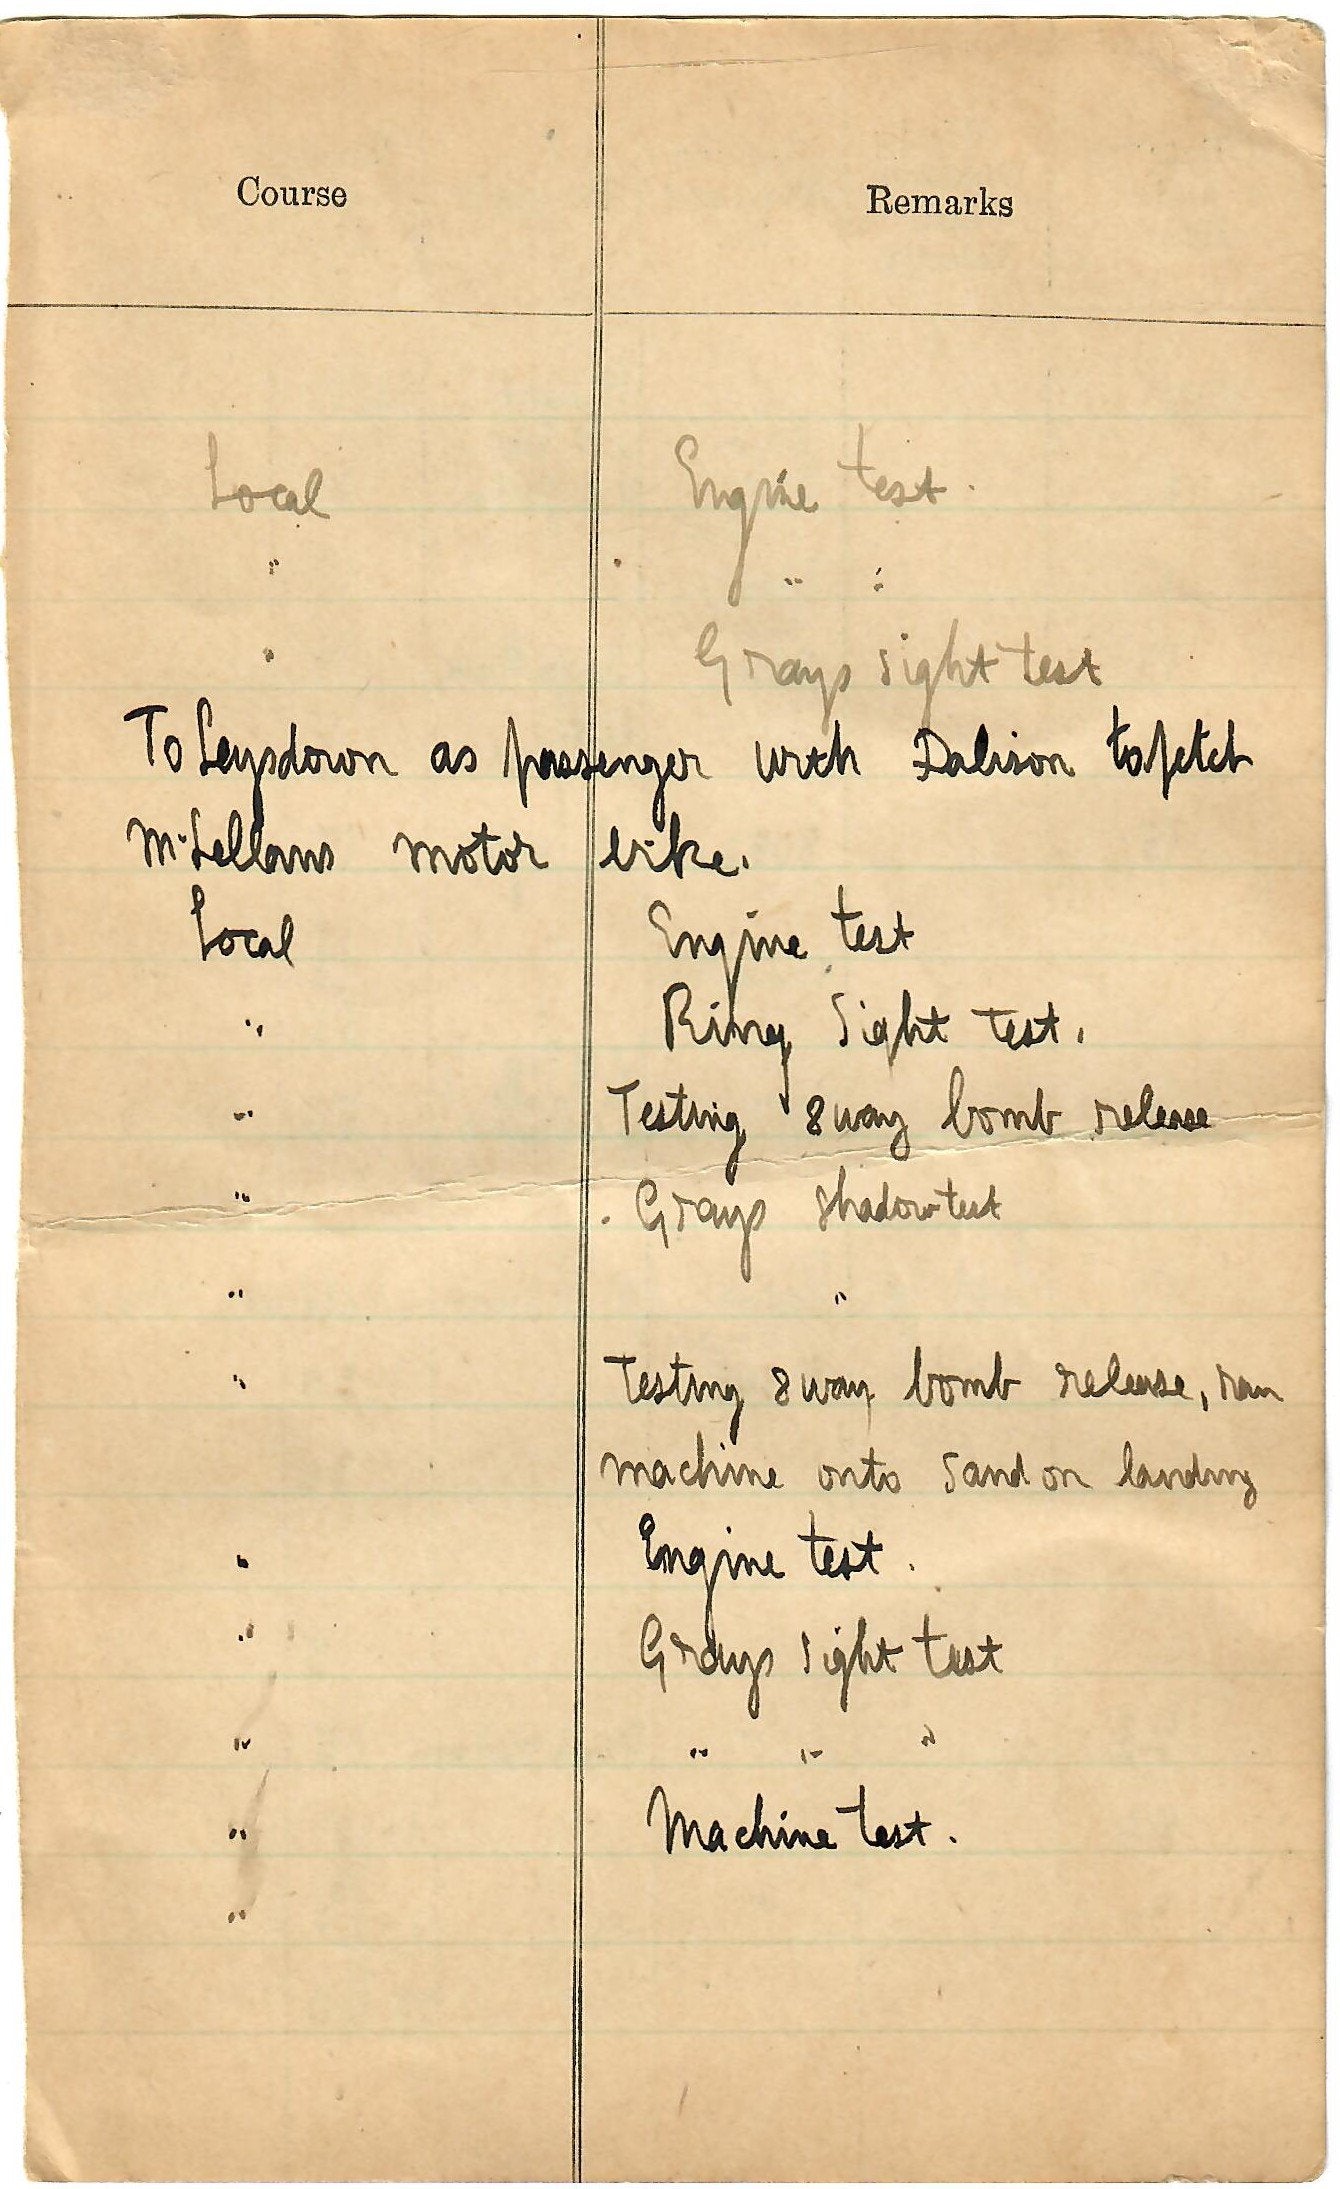 Course Remarks
Local Engine test.
" " "
" Grays sight test
To Leysdown as passenger with Dalison to fetch
McLellans motor bike.
Local Engine test
" Ring Sight test.
" Testing 8 way bomb release
" Grays shadow test
" "
" Testing 8 way bomb release, ran
machine onto sand on landing
" Engine test.
" Grays sight test
" " " "
" Machine test.
"